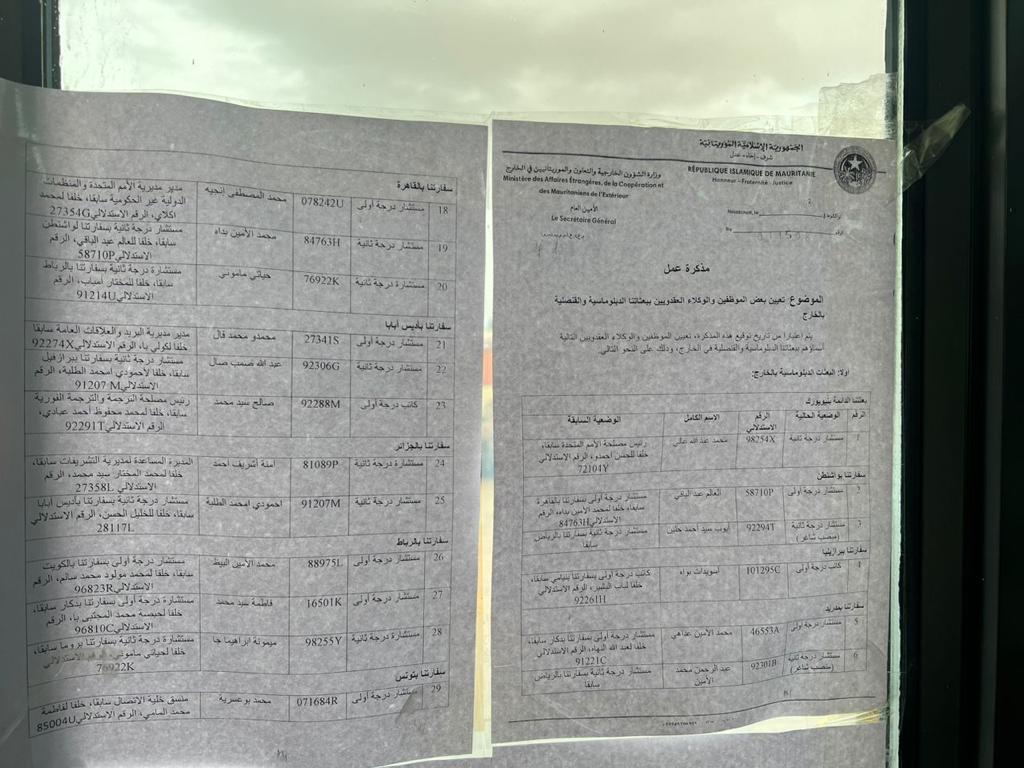 الجمهورية الإسلامية الموريتانية
شرف - إخاء - عدل
RÉPUBLIQUE ISLAMIQUE DE MAURITANIE
Honneur – Fraternité – Justice
وزارة الشؤون الخارجية والتعاون والموريتانيين في الخارج
Ministère des Affaires Étrangères, de la Coopération et
des Mauritaniens de l'Extérieur
الأمين العام
Le Secrétaire Général
Nouakchott, le
No
مذكرة عمل
الموضوع: تعيين بعض الموظفين والوكلاء العقدويين ببعثاتنا الدبلوماسية والقنصلية
بالخارج
يتم اعتبارا من تاريخ توقيع هذه المذكرة، تعيين الموظفين والوكلاء العقدويين التالية
أسماؤهم ببعثاتنا الدبلوماسية والقنصلية في الخارج، وذلك على النحو التالي:
أولا: البعثات الدبلوماسية بالخارج:
بعثتنا الدائمة بنيويورك
الرقم الوضعية الحالية الرقم الاستدلالي الاسم الكامل الوضعية السابقة
1 مستشار درجة ثانية 98254X محمد عبد الله غالي رئيس مصلحة الأمم المتحدة سابقا،
خلفا للحسن أحمدو، الرقم الاستدلالي
72104Y
سفارتنا بواشنطن
2 مستشار درجة أولى 58710P العالم عبد الباقي مستشار درجة أولى بسفارتنا بالقاهرة
سابقا، خلفا لمحمد الأمين بداه، الرقم
الاستدلالي84763H
3 مستشار درجة ثانية 92294T أيوب سيد أحمد مستشار درجة ثانية بسفارتنا بالرياض
(منصب شاغر) سابقا
سفارتنا ببرازيليا
4 كاتب درجة أولى 101295C اسويدات بواه كاتب درجة أولى بسفارتنا بنيامي سابقا،
خلفا البشير، الرقم الاستدلالي
92261H
سفارتنا بمدريد
5 مستشار درجة أولى 46553A محمد الأمين مستشار درجة أولى بسفارتنا بدكار سابقا،
خلفا لعبد الله البهاه، الرقم الاستدلالي
91221C
6 مستشار درجة ثانية 92301B عبد الرحمن محمد مستشار درجة ثانية بسفارتنا بالرياض
(منصب شاغر) الأمين سابقا
سفارتنا بالقاهرة
18 مستشار درجة أولى 078242U محمد المصطفى انجيه مدير مديرية الأمم المتحدة والمنظمات
الدولية غير الحكومية سابقا، خلفا لمحمد
اكلاي، الرقم الاستدلالي 27354G
19 مستشار درجة ثانية 84763H محمد الأمين بداه مستشار درجة ثانية بسفارتنا لواشنطن
سابقا، خلفا للعالم عبد الباقي، الرقم
الاستدلالي58710P
20 مستشارة درجة ثانية 76922K حياتي ماموني مستشارة درجة ثانية بسفارتنا بالرباط
سابقا، خلفا للمختار امباب، الرقم
الاستدلالي91214U
سفارتنا بأديس أبابا
21 مستشار درجة أولى 27341S محمدو محمد قال مدير مديرية البريد والعلاقات العامة سابقا
خلفا لكولي با، الرقم الاستدلالي92274X
22 مستشار درجة ثانية 92306G عبد الله صمب صال مستشار درجة ثانية بسفارتنا ببرازفيل
سابقا، خلفا لأحمودي امحمد الطلبة، الرقم
الاستدلالي91207 M
23 كاتب درجة أولى 92288M صالح سيد محمد رئيس مصلحة الترجمة والترجمة الفورية
سابقا، خلفا لمحمد محفوظ أحمد عبادي،
الرقم الاستدلالي92291T
سفارتنا بالجزائر
24 مستشارة درجة ثانية 81089P آمنة أشريف أحمد المديرة المساعدة لمديرية التشريفات سابقا،
خلفا لمحمد المختار سيد محمد، الرقم
الاستدلالي 27358L
25 مستشار درجة ثانية 91207M احمودي امحمد الطلبة مستشار درجة ثانية بسفارتنا بأديس أبابا
سابقا، خلفا للخليل الحسن، الرقم الاستدلالي
28117L
سفارتنا بالرباط
26 مستشار درجة أولى 88975L محمد الأمين البيط مستشار درجة أولى بسفارتنا بالكويت
سابقا، خلفا لمحمد مولود محمد سالم، الرقم
الاستدلالي96823R
27 مستشارة درجة أولى 16501K فاطمة سيد محمد مستشارة درجة أولى بسفارتنا بدكار سابقا،
خلفا لحبيصة محمد المجتبى با، الرقم
الاستدلالي96810C
28 مستشارة درجة ثانية 98255Y ميمونة ابراهيما جا مستشارة درجة ثانية بسفارتنا بروما سابقا،
خلفا لحياتي ماموني، الرقم الاستدلالي
76922K
سفارتنا بتونس
29 مستشار درجة أولى 071684R محمد بوعسرية منسق خلية الاتصال سابقا، خلفا لفاطمة
محمد المامي، الرقم الاستدلالي85004U